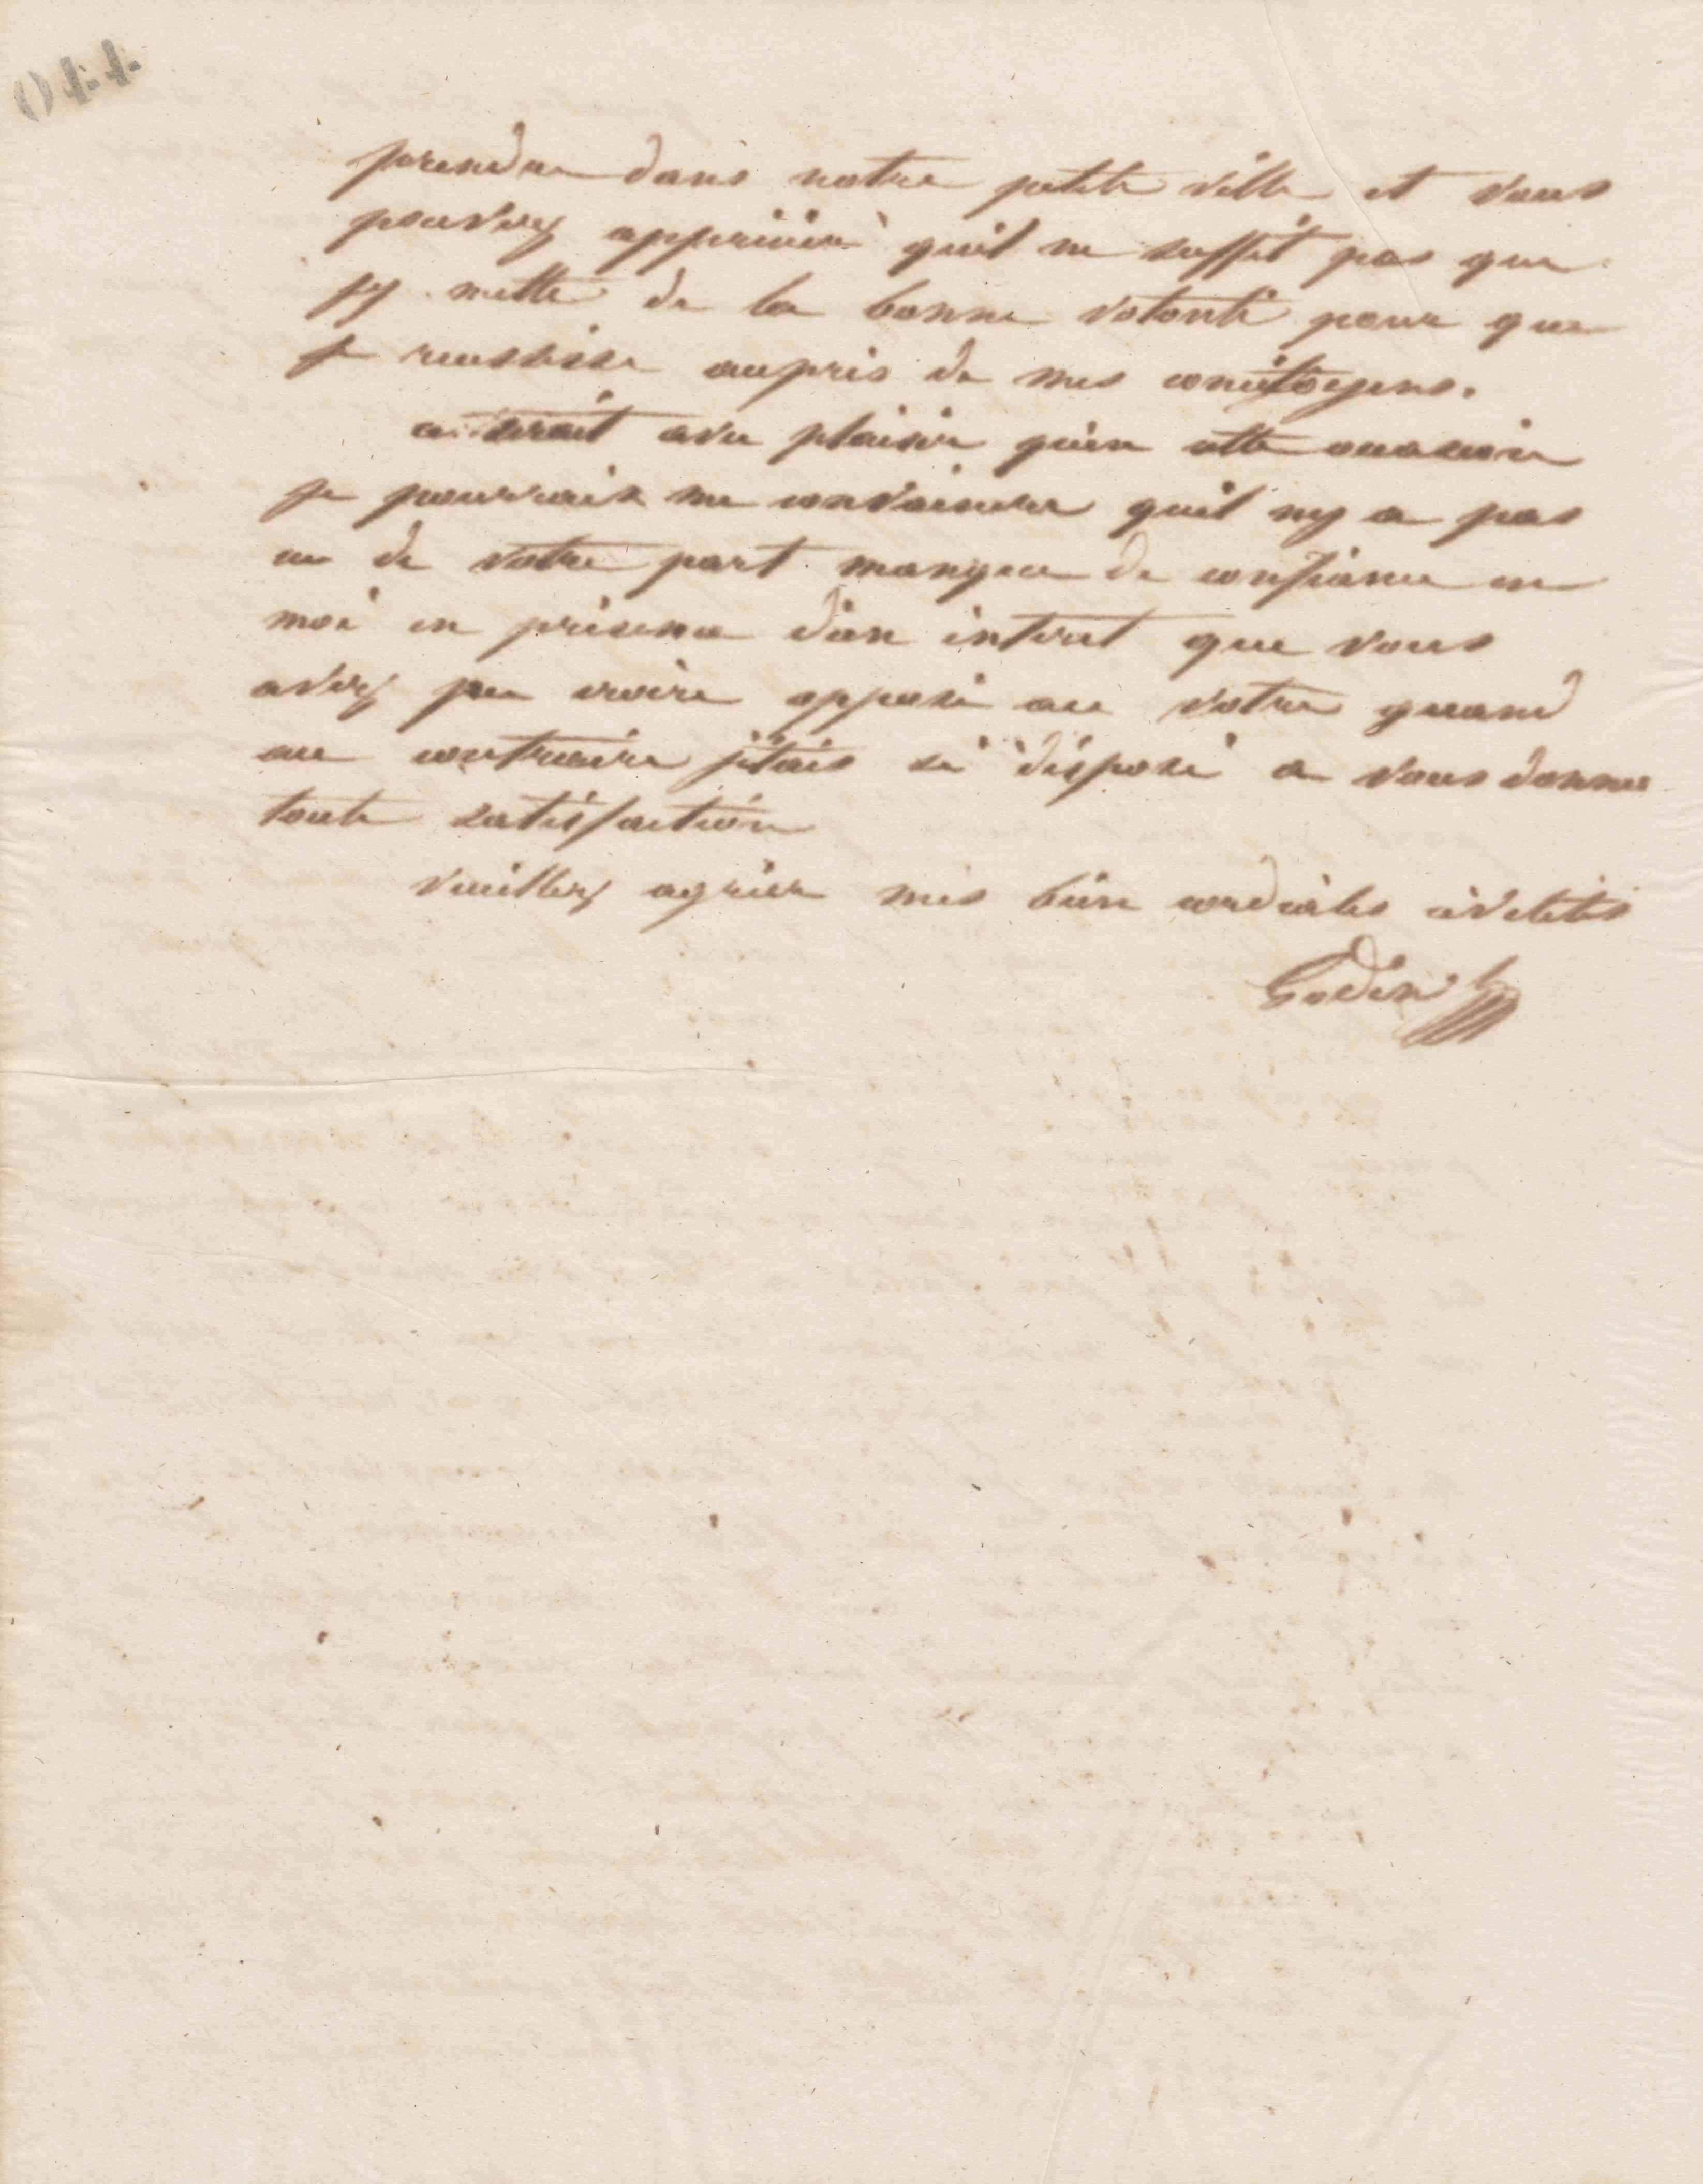 044
prendre dans notre petite ville et vous
pouvez apprécier quil ne suffit pas que
jy mette de la bonne volonté pour que
je reussisse aupris de mes concitoyens.
ce serait avec plaisir quen cette occasion
je pourrais me convaincre quil ny a pas
eu de votre part manque de confiance en
moi en présence d'un interet que vous
avez pu croire opposé au votre quand
au contraire j'étais si disposé a vous donner
toute satisfaction
veuillez agréer mes bien cordiales civilités
Godin